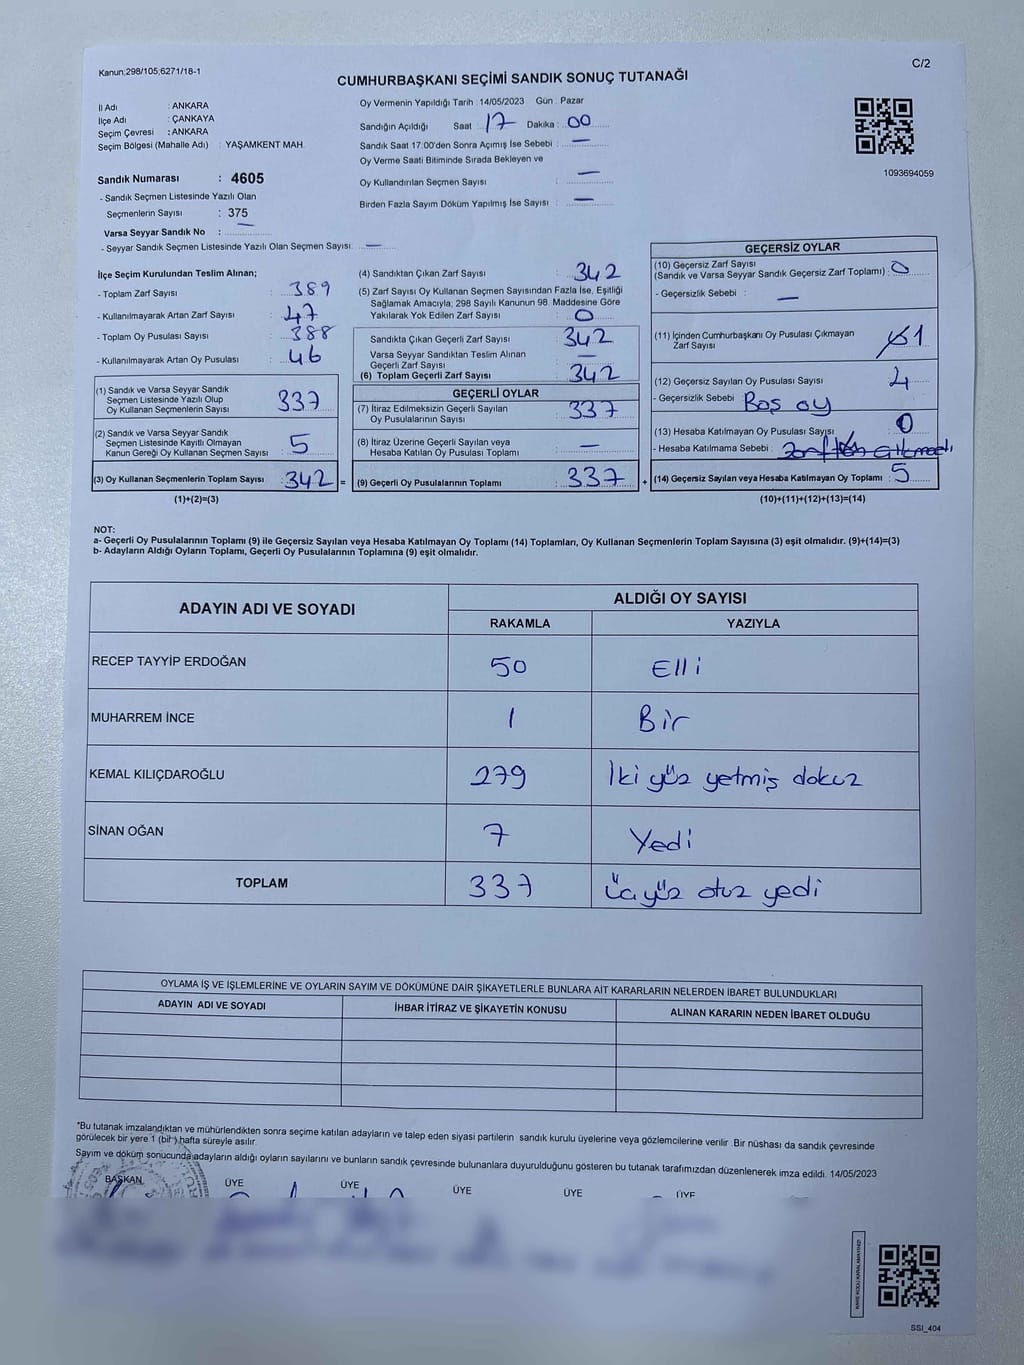 Kanun;298/105;6271/18-1
C/2
CUMHURBAŞKANI SEÇİMİ SANDIK SONUÇ TUTANAĞI
İl Adı : ANKARA
İlçe Adı : ÇANKAYA
Seçim Çevresi : ANKARA
Seçim Bölgesi (Mahalle Adı) : YAŞAMKENT MAH.
Sandık Numarası : 4605
- Sandık Seçmen Listesinde Yazılı Olan
Seçmenlerin Sayısı : 375
Varsa Seyyar Sandık No : —
- Seyyar Sandık Seçmen Listesinde Yazılı Olan Seçmen Sayısı: —
Oy Vermenin Yapıldığı Tarih : 14/05/2023 Gün : Pazar
Sandığın Açıldığı Saat : 17 Dakika : 00
Sandık Saat 17:00'den Sonra Açımış İse Sebebi : —
Oy Verme Saati Bitiminde Sırada Bekleyen ve
Oy Kullandırılan Seçmen Sayısı : —
Birden Fazla Sayım Döküm Yapılmış İse Sayısı : —
1093694059
İlçe Seçim Kurulundan Teslim Alınan;
- Toplam Zarf Sayısı : 389
- Kullanılmayarak Artan Zarf Sayısı : 47
- Toplam Oy Pusulası Sayısı : 388
- Kullanılmayarak Artan Oy Pusulası : 46
(1) Sandık ve Varsa Seyyar Sandık
Seçmen Listesinde Yazılı Olup
Oy Kullanan Seçmenlerin Sayısı : 337
(2) Sandık ve Varsa Seyyar Sandık
Seçmen Listesinde Kayıtlı Olmayan
Kanun Gereği Oy Kullanan Seçmen Sayısı : 5
(3) Oy Kullanan Seçmenlerin Toplam Sayısı : 342 =
(1)+(2)=(3)
(4) Sandıktan Çıkan Zarf Sayısı : 342
(5) Zarf Sayısı Oy Kullanan Seçmen Sayısından Fazla İse, Eşitliği
Sağlamak Amacıyla; 298 Sayılı Kanunun 98. Maddesine Göre
Yakılarak Yok Edilen Zarf Sayısı : 0
Sandıkta Çıkan Geçerli Zarf Sayısı : 342
Varsa Seyyar Sandıktan Teslim Alınan
Geçerli Zarf Sayısı : —
(6) Toplam Geçerli Zarf Sayısı : 342
GEÇERLİ OYLAR
(7) İtiraz Edilmeksizin Geçerli Sayılan
Oy Pusulalarının Sayısı : 337
(8) İtiraz Üzerine Geçerli Sayılan veya
Hesaba Katılan Oy Pusulası Toplamı : —
(9) Geçerli Oy Pusulalarının Toplamı : 337 +
GEÇERSİZ OYLAR
(10) Geçersiz Zarf Sayısı
(Sandık ve Varsa Seyyar Sandık Geçersiz Zarf Toplamı) : 0
- Geçersizlik Sebebi : —
(11) İçinden Cumhurbaşkanı Oy Pusulası Çıkmayan
Zarf Sayısı : 1
(12) Geçersiz Sayılan Oy Pusulası Sayısı : 4
- Geçersizlik Sebebi : Boş oy
(13) Hesaba Katılmayan Oy Pusulası Sayısı : 0
- Hesaba Katılmama Sebebi : zarftan çıkmadı
(14) Geçersiz Sayılan veya Hesaba Katılmayan Oy Toplamı : 5
(10)+(11)+(12)+(13)=(14)
NOT:
a- Geçerli Oy Pusulalarının Toplamı (9) ile Geçersiz Sayılan veya Hesaba Katılmayan Oy Toplamı (14) Toplamları, Oy Kullanan Seçmenlerin Toplam Sayısına (3) eşit olmalıdır. (9)+(14)=(3)
b- Adayların Aldığı Oyların Toplamı, Geçerli Oy Pusulalarının Toplamına (9) eşit olmalıdır.
ADAYIN ADI VE SOYADI ALDIĞI OY SAYISI
RAKAMLA YAZIYLA
RECEP TAYYİP ERDOĞAN 50 Elli
MUHARREM İNCE 1 Bir
KEMAL KILIÇDAROĞLU 279 İki yüz yetmiş dokuz
SİNAN OĞAN 7 Yedi
TOPLAM 337 üç yüz otuz yedi
OYLAMA İŞ VE İŞLEMLERİNE VE OYLARIN SAYIM VE DÖKÜMÜNE DAİR ŞİKAYETLERLE BUNLARA AİT KARARLARIN NELERDEN İBARET BULUNDUKLARI
ADAYIN ADI VE SOYADI İHBAR İTİRAZ VE ŞİKAYETİN KONUSU ALINAN KARARIN NEDEN İBARET OLDUĞU
*Bu tutanak imzalandıktan ve mühürlendikten sonra seçime katılan adayların ve talep eden siyasi partilerin sandık kurulu üyelerine veya gözlemcilerine verilir .Bir nüshası da sandık çevresinde
görülecek bir yere 1 (bir ) hafta süreyle asılır.
Sayım ve döküm sonucunda adayların aldığı oyların sayılarını ve bunların sandık çevresinde bulunanlara duyurulduğunu gösteren bu tutanak tarafımızdan düzenlenerek imza edildi. 14/05/2023
BAŞKAN ÜYE ÜYE ÜYE ÜYE ÜYE
KARE KODU KARALAMAYINIZ!
SSI_404